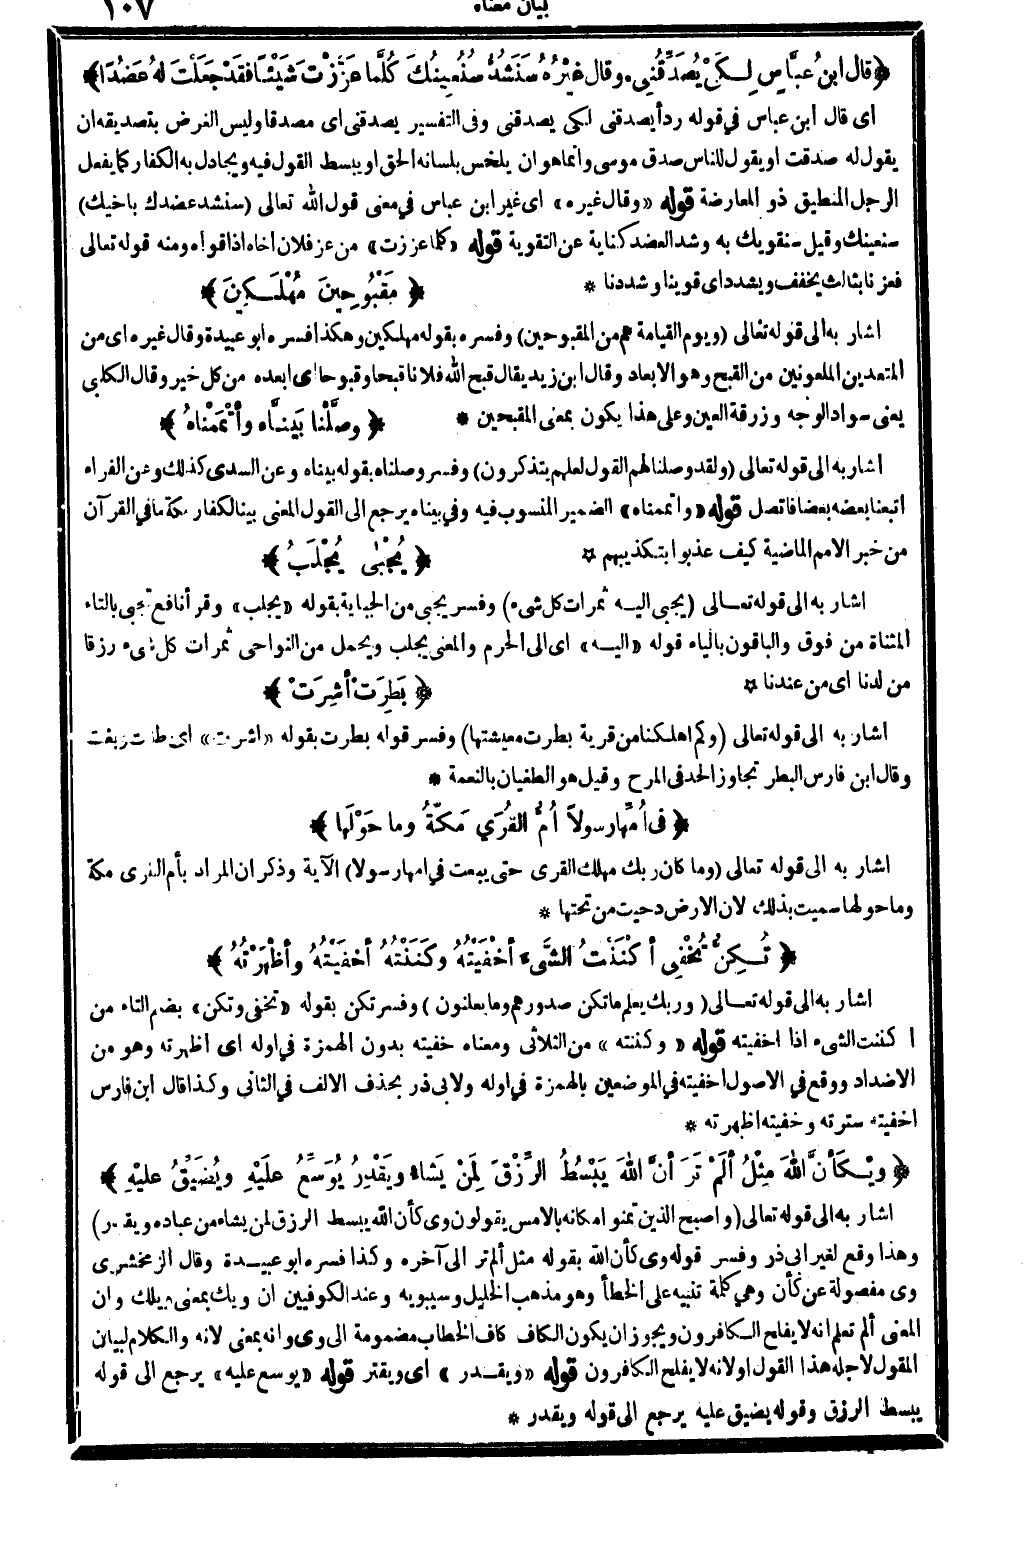 بيان معناه
١٠٧
﴿ قال ابنُ عبَّاسٍ لِكَيْ يُصَدِّقُنِي. وقال غَيْرُهُ سَنَشُدُّ سنُعِينُكَ كُلَّما عَزَّزْتَ شَيْئًا فقَدْ جَعَلْتَ لهُ عَضُدًا ﴾
اى قال ابن عباس في قوله ردأ يصدقنى لكى يصدقنى وفى التفسير يصدقنى اى مصدقا وليس الغرض بتصديقه ان
يقول له صدقت او يقول للناس صدق موسى وانما هو ان يلخس بلسانه الحق او يبسط القول فيه ويجادل به الكفار كما يفعل
الرجل المنطيق ذو المعارضة قوله «وقال غيره» اى غير ابن عباس في معنى قول الله تعالى (سنشد عضدك باخيك)
سنعينك وقيل سنقويك به وشد العضد كناية عن التقوية قوله «كلما عززت» من عز فلان اخاه اذا قواه ومنه قوله تعالى
فعزنا بثالث يخفف ويشدد اى قوينا وشددنا *
﴿ مَقْبُوحِينَ مُهْلَكِينَ ﴾
اشار به الى قوله تعالى (ويوم القيامة هم من المقبوحين) وفسره بقوله مهلكين وهكذا فسره ابو عبيدة وقال غيره اى من
المتعدين الملعونين من القبح وهو الابعاد وقال ابن زيد يقال قبح الله فلانا قبحا وقبوحا اى ابعده من كل خير وقال الكلبى
يعنى سواد الوجه وزرقة العين وعلى هذا يكون بمعنى المقبحين *
﴿ وصَّلْنا بَيَّنَّاه وأتْمَمْناهُ ﴾
اشار به الى قوله تعالى (ولقد وصلنا لهم القول لعلهم يتذكرون) وفسر وصلناه بقوله بيناه وعن السدى كذلك وعن الفراء
اتبعنا بعضه بعضا فاتصل قوله «واتممناه» الضمير المنسوب فيه وفي بيناه يرجع الى القول المعنى بينا لكفار مكة ما في القرآن
من خبر الامم الماضية كيف عذبوا بتكذيبهم *
﴿ يُجْبٰى يُجْلَبُ ﴾
اشار به الى قوله تعالى (يجبى اليه ثمرات كل شىء) وفسر يجبى من الجباية بقوله «يجلب» وقرأ نافع تجبى بالتاء
المثناة من فوق والباقون بالياء قوله «اليه» اى الى الحرم والمعنى يجلب ويحمل من النواحى ثمرات كل شىء رزقا
من لدنا اى من عندنا *
﴿ بَطِرَتْ أشِرَتْ ﴾
اشار به الى قوله تعالى (وكم اهلكنا من قرية بطرت معيشتها) وفسر قوله بطرت بقوله «اشرت» اى طغت وبغت
وقال ابن فارس البطر تجاوز الحد فى المرح وقيل هو الطغيان بالنعمة *
﴿ فى أُمِّها رسولاً أُمُّ القُرَي مَكّةُ وما حَوْلَها ﴾
اشار به الى قوله تعالى (وما كان ربك مهلك القرى حتى يبعث في امها رسولا) الآية وذكر ان المراد بأم القرى مكة
وما حولها سميت بذلك لان الارض دحيت من تحتها *
﴿ تُكِنُّ تُخْفِي أكْنَنْتُ الشَّىءَ أخْفَيْتُهُ وكَنَنْتُهُ أخْفَيْتُهُ وأظْهَرْتُهُ ﴾
اشار به الى قوله تعالى ( وربك يعلم ما تكن صدورهم وما يعلنون ) وفسر تكن بقوله «تخفى وتكن» بضم التاء من
اكننت الشىء اذا اخفيته قوله « وكننته » من الثلاثى ومعناه خفيته بدون الهمزة في اوله اى اظهرته وهو من
الاضداد ووقع في الاصول اخفيته في الموضعين بالهمزة في اوله ولابى ذر بحذف الالف في الثانى وكذا قال ابن فارس
اخفيته سترته وخفيته اظهرته *
﴿ ويْكَأنَّ اللهَ مِثْلُ ألَمْ تَرَ أنَّ اللهَ يَبْسُطُ الرِّزْقَ لِمَنْ يَشاءُ ويَقْدِرُ يُوَسِّعُ علَيْهِ ويُضَيِّقُ عليْهِ ﴾
اشار به الى قوله تعالى (واصبح الذين تمنوا مكانه بالامس يقولون وى كأن الله يبسط الرزق لمن يشاء من عباده ويقدر)
وهذا وقع لغير ابى ذر وفسر قوله وى كأن الله بقوله مثل ألم تر الى آخره وكذا فسره ابو عبيدة وقال الزمخشرى
وى مفصولة عن كأن وهى كلمة تنبيه على الخطأ وهو مذهب الخليل وسيبويه وعند الكوفيين ان ويك بمعنى ويلك وان
المعنى ألم تعلم انه لا يفلح الكافرون ويجوز ان يكون الكاف كاف الخطاب مضمومة الى وى وانه بمعنى لانه والكلام لبيان
المقول لاجله هذا القول او لانه لا يفلح الكافرون قوله «ويقدر » اى ويقتر قوله «يوسع عليه» يرجع الى قوله
يبسط الرزق وقوله يضيق عليه يرجع الى قوله ويقدر *